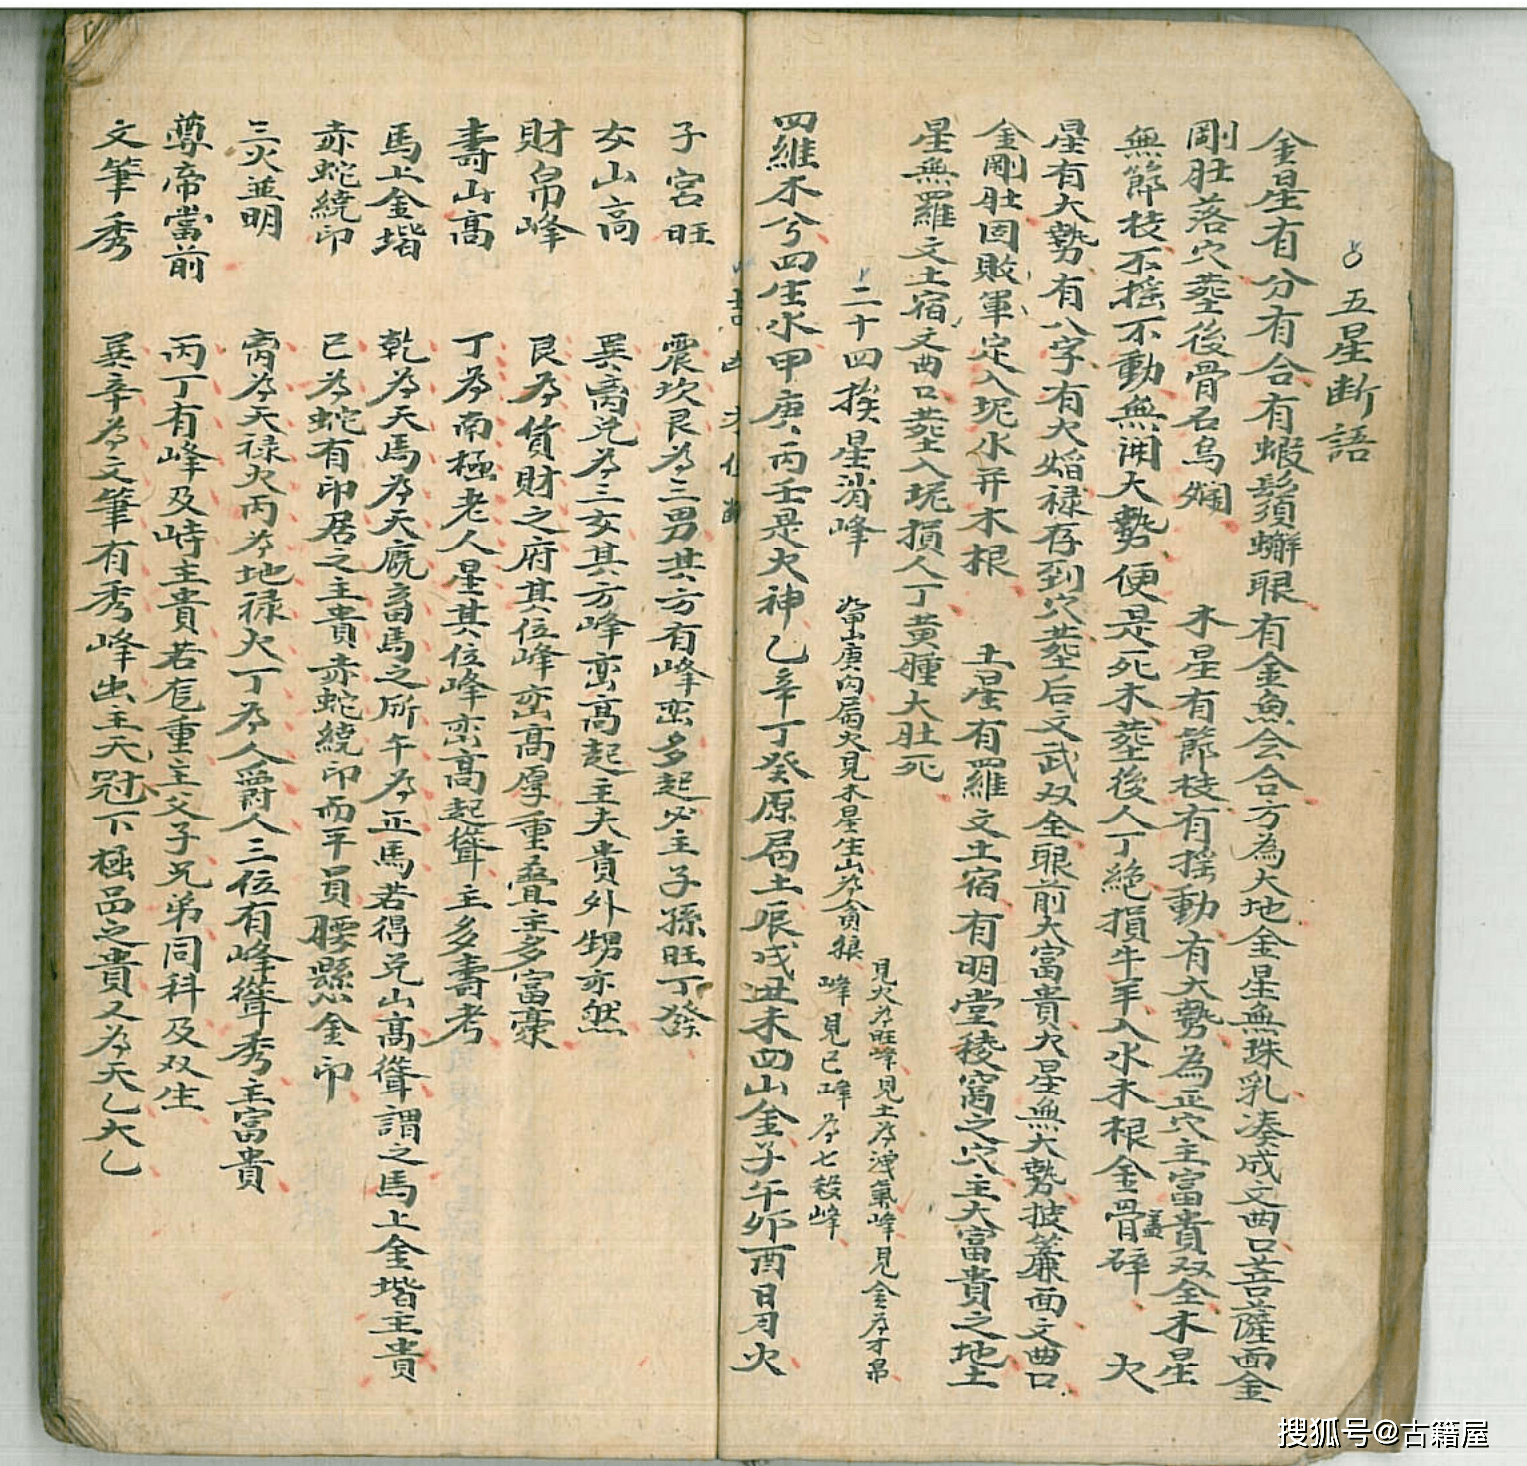 五星断語
金星有分有合有蝦鬚蠏眼有金魚会合方為大地金星無珠乳凑成文曲口菩薩面金
剛肚落穴塟後骨石烏爛　木星有節枝有揺動有大勢為正穴主富貴双全木星
無節枝不揺不動無開大勢便是死木塟後人丁絶損牛羊入水木根金骨碎　火
蓋
星有大勢有八字有火焰禄存到穴塟后文武双全眼前大富貴火星無大勢披簾面文曲口
金剛肚固敗軍定入坭水并木根　土星有羅文土宿有明堂稜窩之穴主大富貴之地土
星無羅文土宿文曲口塟入坭損人丁黄腫大肚死
二十四挨星消峰
甲山庚丙属火見木星生山為貪狼
見火為旺峰見土為洩氣峰見金為才帛
峰見巳峰為七殺峰
四維木兮四生水甲庚丙壬是火神乙辛丁癸原局土辰戌丑未四山金子午卯酉日月火
子宮旺　震坎艮為三男其方有峰峦多起必主子孫旺丁發
女山高　巽离兑為三女其方峰峦高起主夫貴外甥亦然
財帛峰　艮為貨財之府其位峰峦高厚重叠主多富豪
壽山高　丁為南極老人星其位峰峦高起聳主多壽考
馬上金堦　乾為天馬為天廐畜馬之所午為正馬若得兑山高聳謂之馬上金堦主貴
赤蛇繞印　巳為蛇有印居之主貴赤蛇繞印而平員腰懸金印
三火並明　丙為天禄火丙為地禄火丁為人爵人三位有峰聳秀主富貴
尊帝當前　丙丁有峰及峙主貴若危重主父子兄弟同科及双生
文筆秀　巽辛為文筆有秀峰出主天冠下極品之貴又為天乙太乙
搜狐号@古籍屋